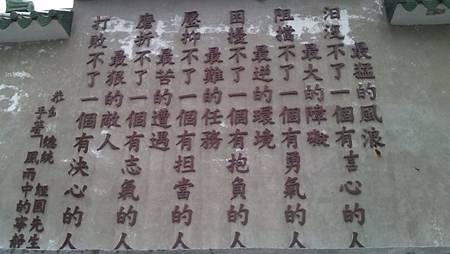 最猛的風浪
汨沒不了一個有言心的人
最大的障礙
阻擋不了一個有勇氣的人
最逆的環境
困擾不了一個有抱負的人
最難的任務
壓抑不了一個有担當的人
最苦的遭遇
磨折不了一個有志氣的人
最狠的敵人
打敗不了一個有決心的人
總統 經國先生
手著 風雨中的寧靜